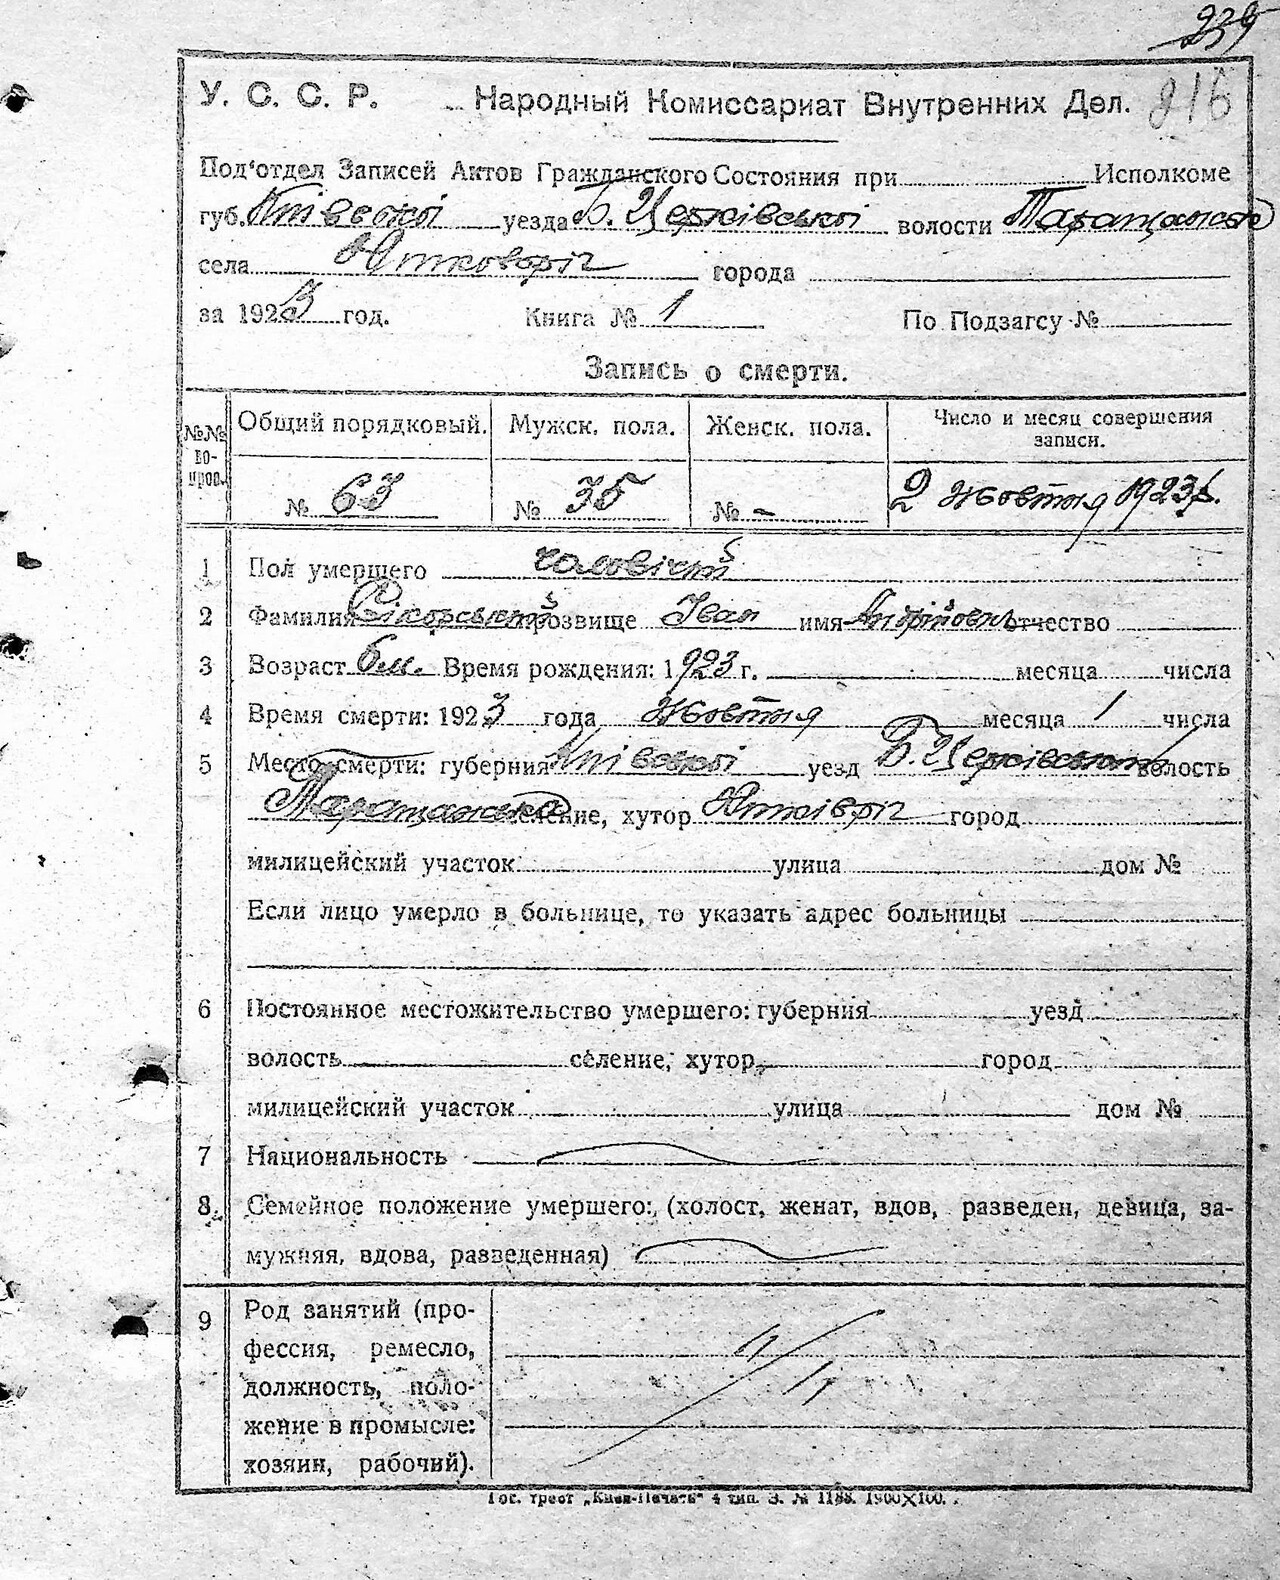 239
У. С. С. Р. Народный Комиссариат Внутренних Дел. 216
Под'отдел Записей Актов Гражданского Состояния при Исполкоме
губ. Київської уезда Б. Церківської волости Таращанської
села Юшковоріг города
за 1923 год. Книга № 1 По Подзагсу №
Запись о смерти.
№№ вопров. Общий порядковый. Мужск. пола. Женск. пола. Число и месяц совершения записи.
№ 63 № 35 № - 2 Жовтня 1923 р.
1 Пол умершего чоловічий
2 Фамилия Сікорський прозвище Іван имя Андрійович отчество
3 Возраст 6 м. Время рождения: 1923 г. месяца числа
4 Время смерти: 1923 года Жовтня месяца 1 числа
5 Место смерти: губерния Київської уезд Б. Церківський волость
Таращанська селение, хутор Юшківріг город
милицейский участок улица дом №
Если лицо умерло в больнице, то указать адрес больницы
6 Постоянное местожительство умершего: губерния уезд
волость селение, хутор город
милицейский участок улица дом №
7 Национальность
8 Семейное положение умершего: (холост, женат, вдов, разведен, девица, за-
мужняя, вдова, разведенная)
9 Род занятий (про-
фессия, ремесло,
должность, поло-
жение в промысле:
хозяин, рабочий).
Гос. трест „Киев-Печать“ 4 тип. З. № 1188. 1900Х100.